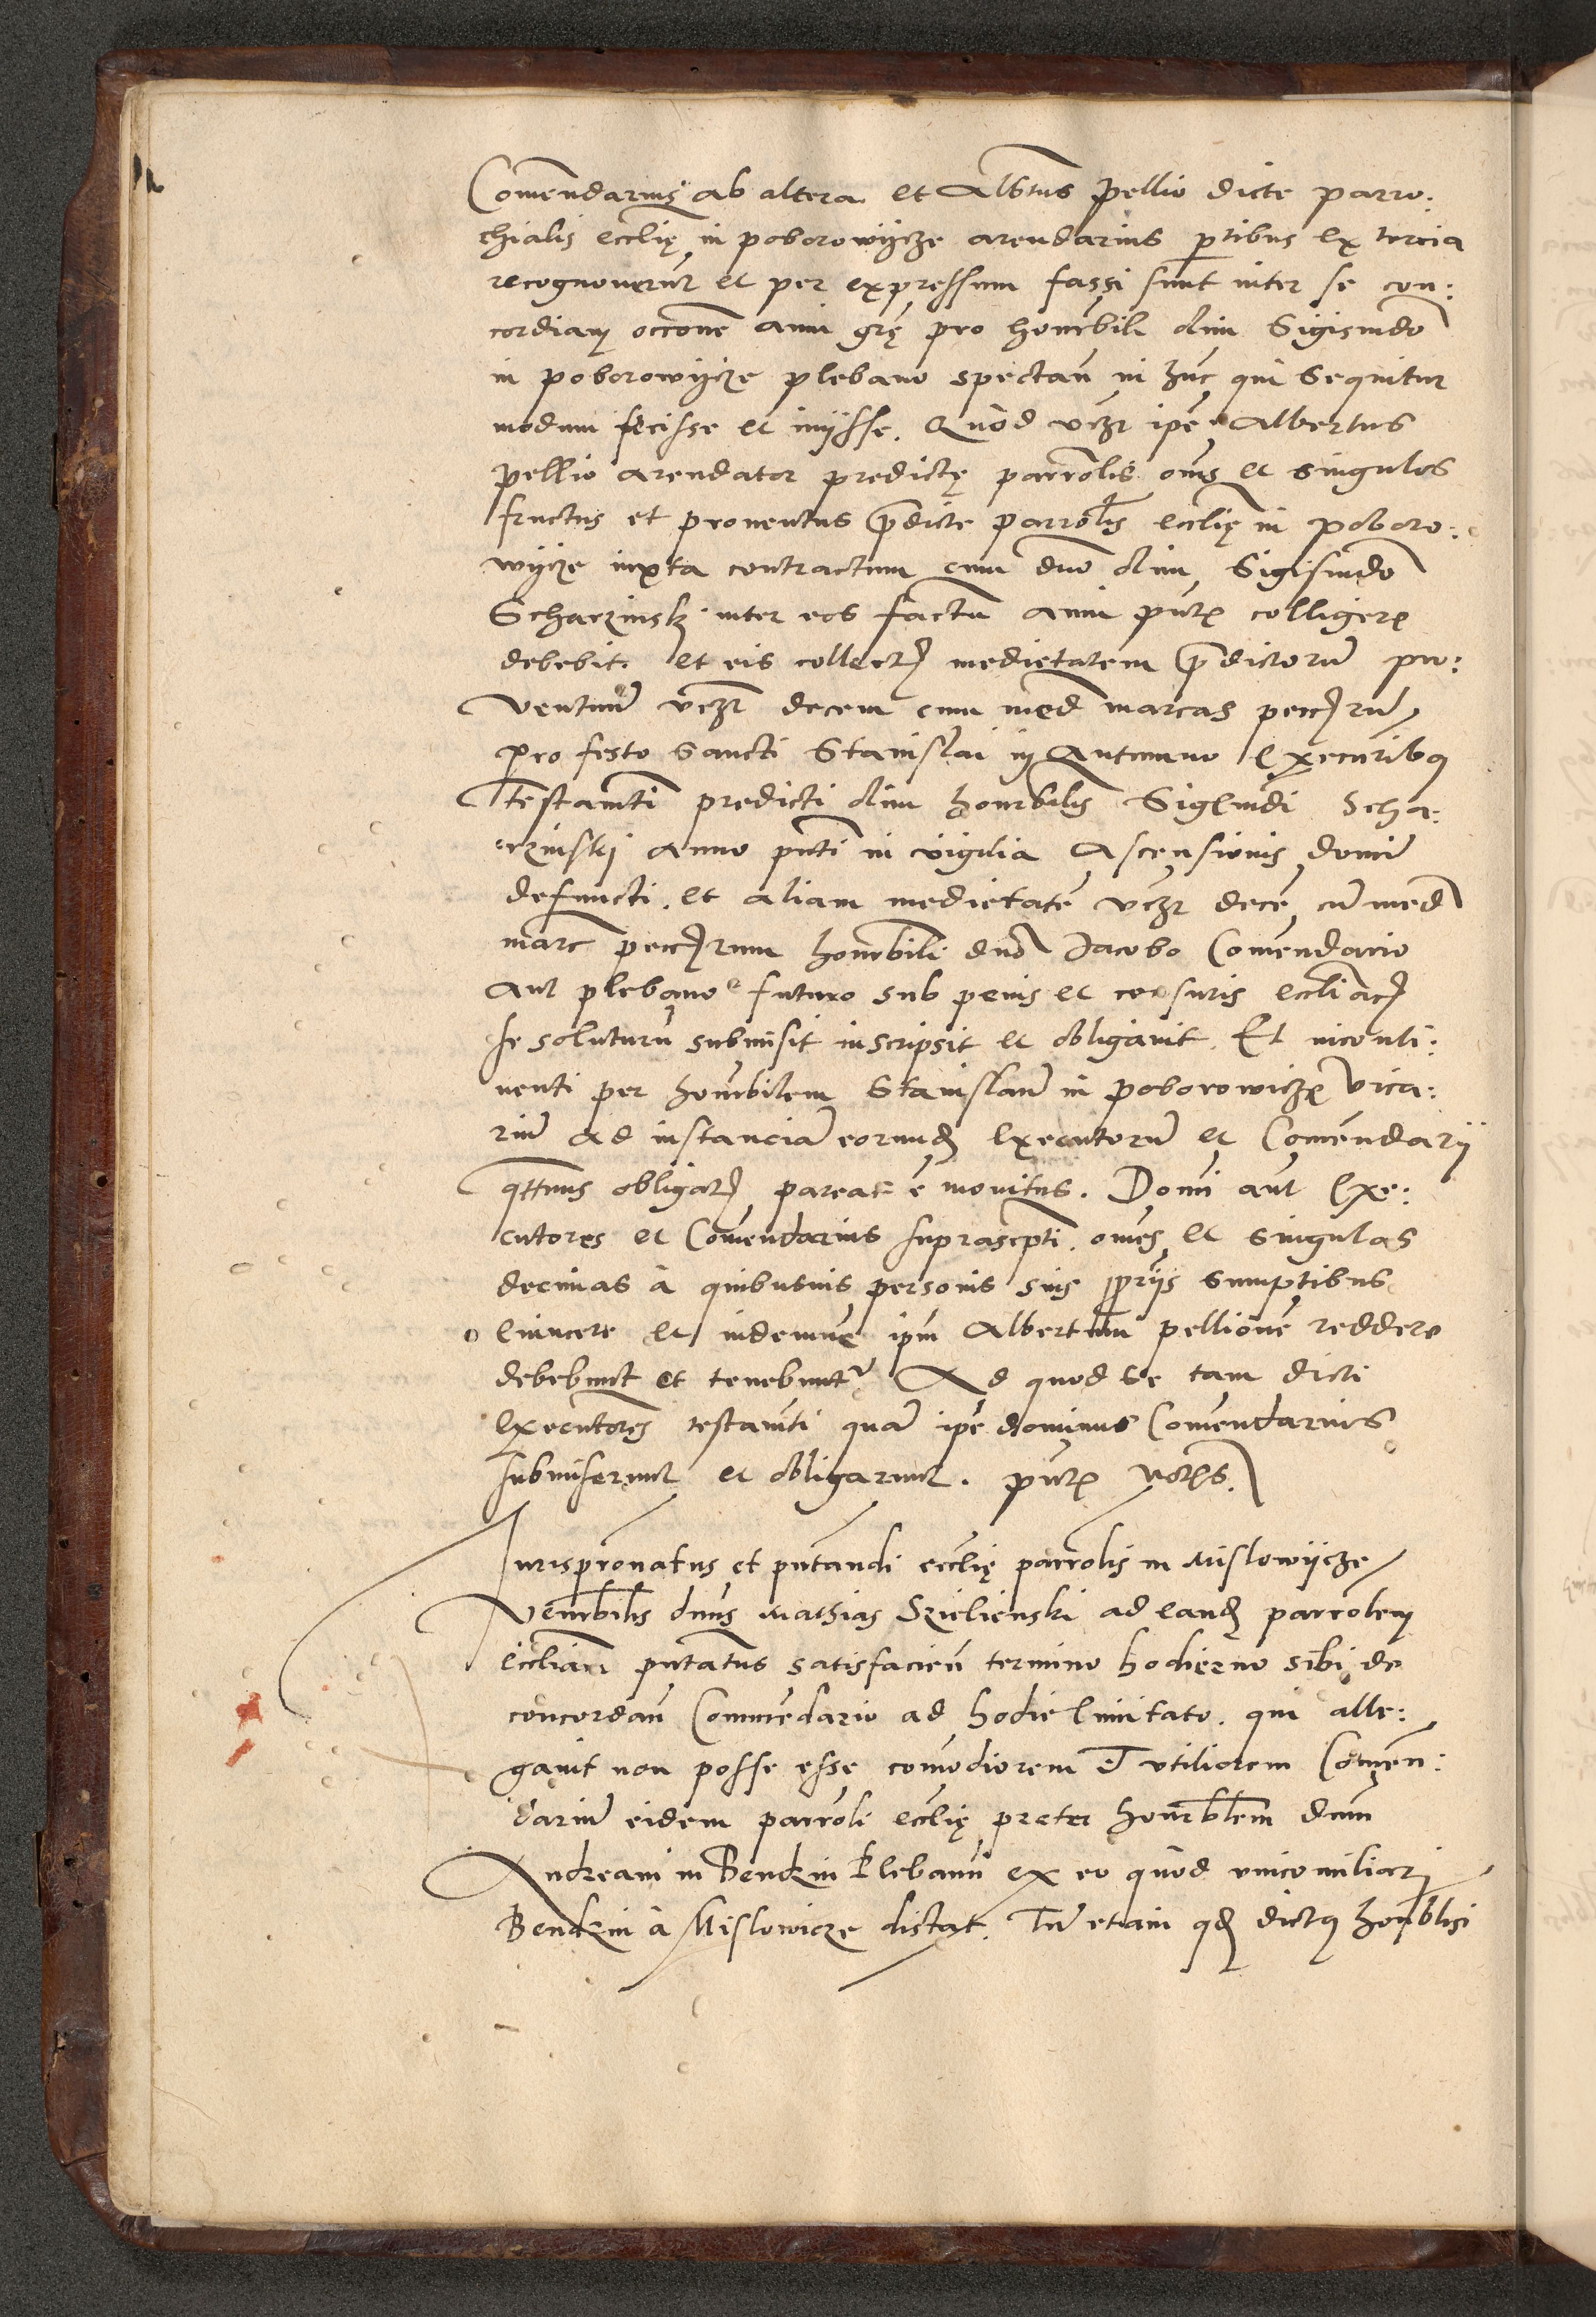 Comendarius ab altera et Albtus pellio dicte parro:
chialis ecclię in poborowijcze arendarius ptibus ex tercia
recognouerunt et per expressum fassi sunt inter se con:
cordiam occone anni grę pro honorbili olim Sigismdo
in poborowijcze plebano spectan in hunc qui sequitur
modum fecisse et inijsse. Quod vczt ipe Albertus
pellio arendator predictę parrolis oms et singulos
fructus et prouentus pdicte parrolis ecclię in poboro:
wijcze iuxta contractum cum dno olim Sigismdo
Scharzinsk inter eos factu anni pnts colligere
debebit. Et eis collectis medietatem pdictorum pro:
uentuum vczt decem cum med marcas peccrum
pro festo Sancti Stanislai in Autumno Executoribus
testamti predicti olim honorbilis Sigismdi Scha:
rzinskj anno pnti in vigilia Ascensionis domini
defuncti. et aliam medietate vczt dece cu med
marc peccrum honorbili dno Iacobo Comendario
aut plebano futuro sub penis et censuris eccliacis
se soluturu submisit inscripsit et obligauit. Et inconti:
nenti per honorbilem Stanislaum in poborowicze vica:
rium ad instanciam eorumd Executorum et Comendarij
qttenus obligatis pareat e monitus. Domini aut Exe:
cutores et Comendarius suprascpti. omes et singulas
decimas à quibusuis personis suis pprijs sumptibus
euincere et indemne ipm Albertum pellione reddere
debebunt et tenebunt Ad quod se tam dicti
Executores testamti quam ipe dominus Comendarius
submiserunt et obligarunt. pnte
Iurispronatus et pntandi ecclię parrolis in Mislowijcze
Venerbilis dnus Mathias Szielienski ad eand parrolem
eccliam pntatus satisfacien termino hodierno sibi de
concordan Commedario ad hodie limitato. qui alle:
gauit non posse esse comodiorem et vtiliorem Comen:
darium eidem parroli ecclię preter honorblem dnum
Andream in Bendzin Plebanum ex eo quod vnico miliari
Bendzin à Mislowicze distat. Tum etiam qd dictus honorblis